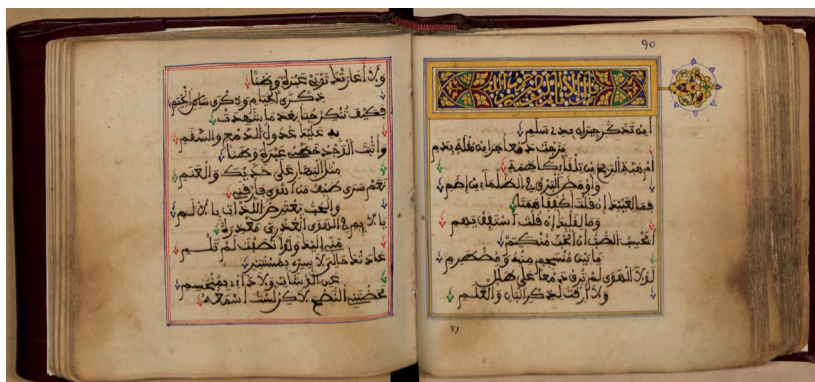 90
أمن تذكر جيران بذي سلم
مزجت دمعا جرى من مقلة بدم
أم هبت الريح من تلقاء كاظمة
وأومض البرق في الظلماء من إضم
فما لعينيك إن قلت اكففا همتا
وما لقلبك إن قلت استفق يهم
أيحسب الصب أن الحب منكتم
ما بين منسجم منه ومضطرم
لولا الهوى لم ترق دمعا على طلل
ولا أرقت لذكر البان والعلم
ولا أعارتك ثوبي عبرة وضنا
ذكرى الخيام وذكرى ساكن الخيم
فكيف تنكر حبا بعد ما شهدت
به عليك عدول الدمع والسقم
وأثبت الوجد خطي عبرة وضنا
مثل البهار على خديك والعنم
نعم سرى طيف من أهوى فأرقني
والحب يعترض اللذات بالألم
يا لائمي في الهوى العذري معذرة
مني إليك ولو أنصفت لم تلم
عدتك حالي لا سري بمستتر
عن الوشاة ولا دائي بمنحسم
محضتني النصح لكن لست أسمعه